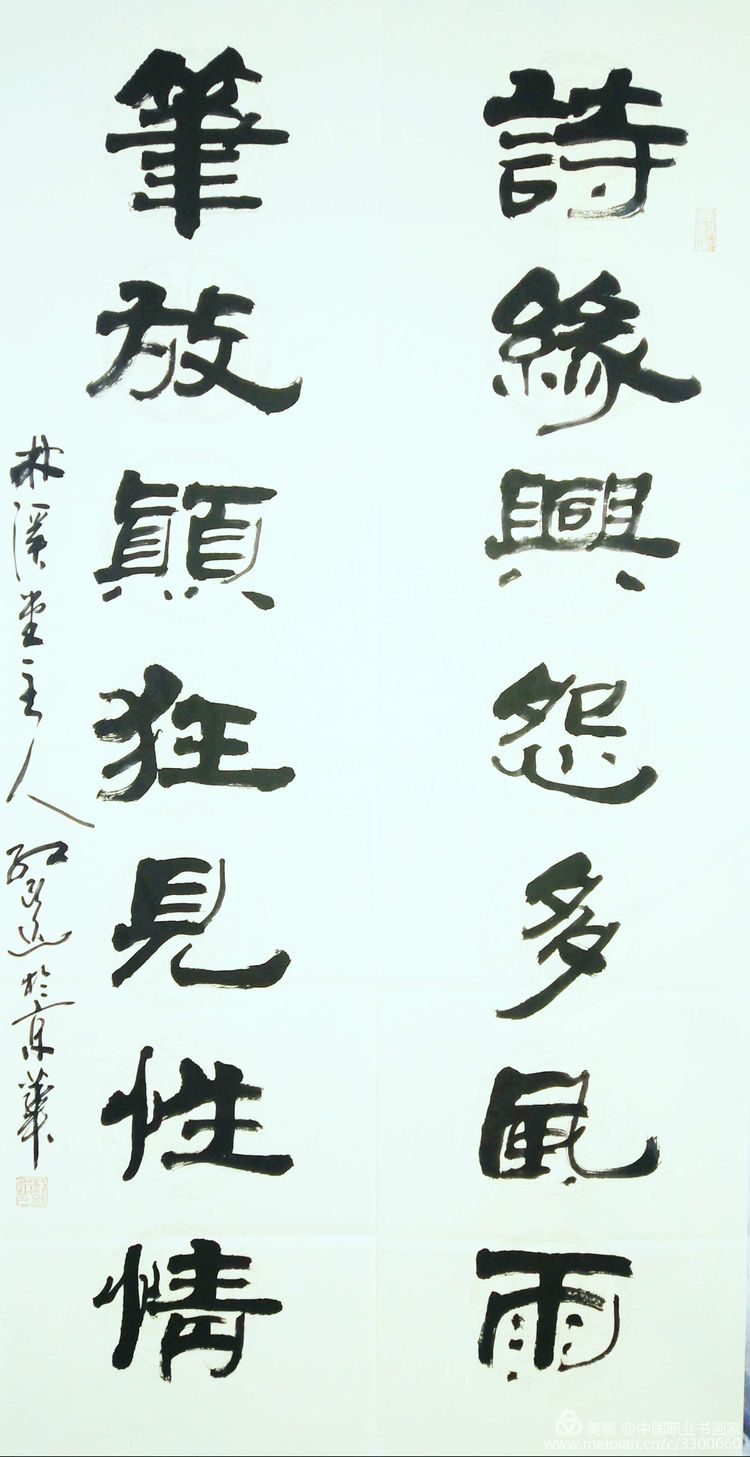 詩緣興怨多風雨
筆放顛狂見性情
林溪堂主人
於京華
美篇 @中国职业书画家
www.meipian.cn/c/3300660